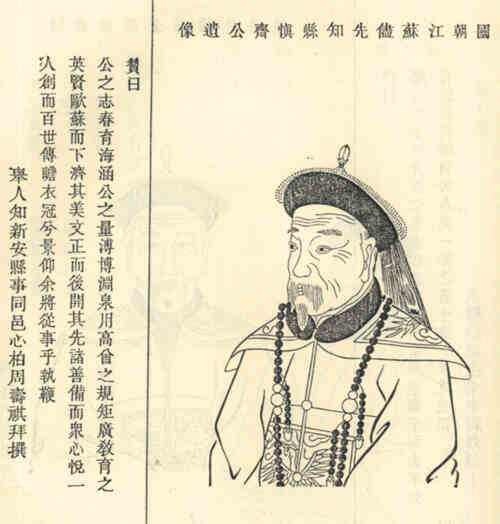 國朝江蘇儘先知縣愼齊公遺像
贊曰
公之志春育海涵公之量溥博淵泉用高曾之規矩廣敎育之
英賢歐蘇而下濟其美文正而後開其先諸善備而衆心悅一
人創而百世傳瞻衣冠兮景仰余將從事乎執鞭
舉人知新安縣事同邑心柏周壽祺拜撰